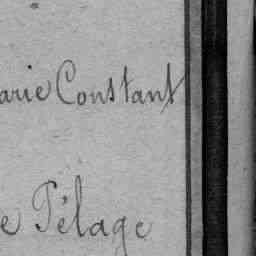 arie Constant
e Pélage